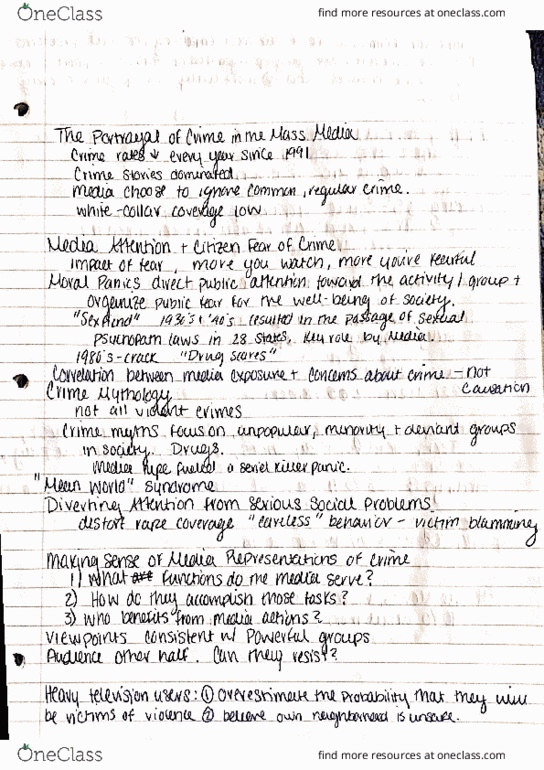 OneClass
find more resources at oneclass.com
The Portrayal of Crime in the Mass Media
Crime rates ↓ every year since 1991
Crime stories dominated
Media choose to ignore common, regular crime.
white-collar coverage low
Media Attention + Citizen Fear of Crime
impact of fear, more you watch, more you're fearful
Moral Panics direct public attention toward the activity/group +
organize public fear for the well-being of society.
"Sex fiend" 1930's + '40's resulted in the passage of sexual
psychopath laws in 28 states, key role by media.
1980's-crack "Drug scares"
Correlation between media exposure + concerns about crime - not
causation
Crime Mythology
not all violent crimes
Crime myths focus on unpopular, minority + deviant groups
in society. Drugs.
Media hype fueled a serial killer panic.
"Mean World" Syndrome
Diverting Attention from Serious Social Problems
distort rape coverage "careless" behavior - victim blamming
Making Sense of Media Representations of Crime
1) What functions do the media serve?
2) How do they accomplish those tasks?
3) Who benefits from media actions?
viewpoints consistent w/ Powerful groups
Audience other half. Can they resist?
Heavy television users: ① overestimate the probability that they will
be victims of violence ② believe own neighborhood is unsafe.
OneClass
find more resources at oneclass.com